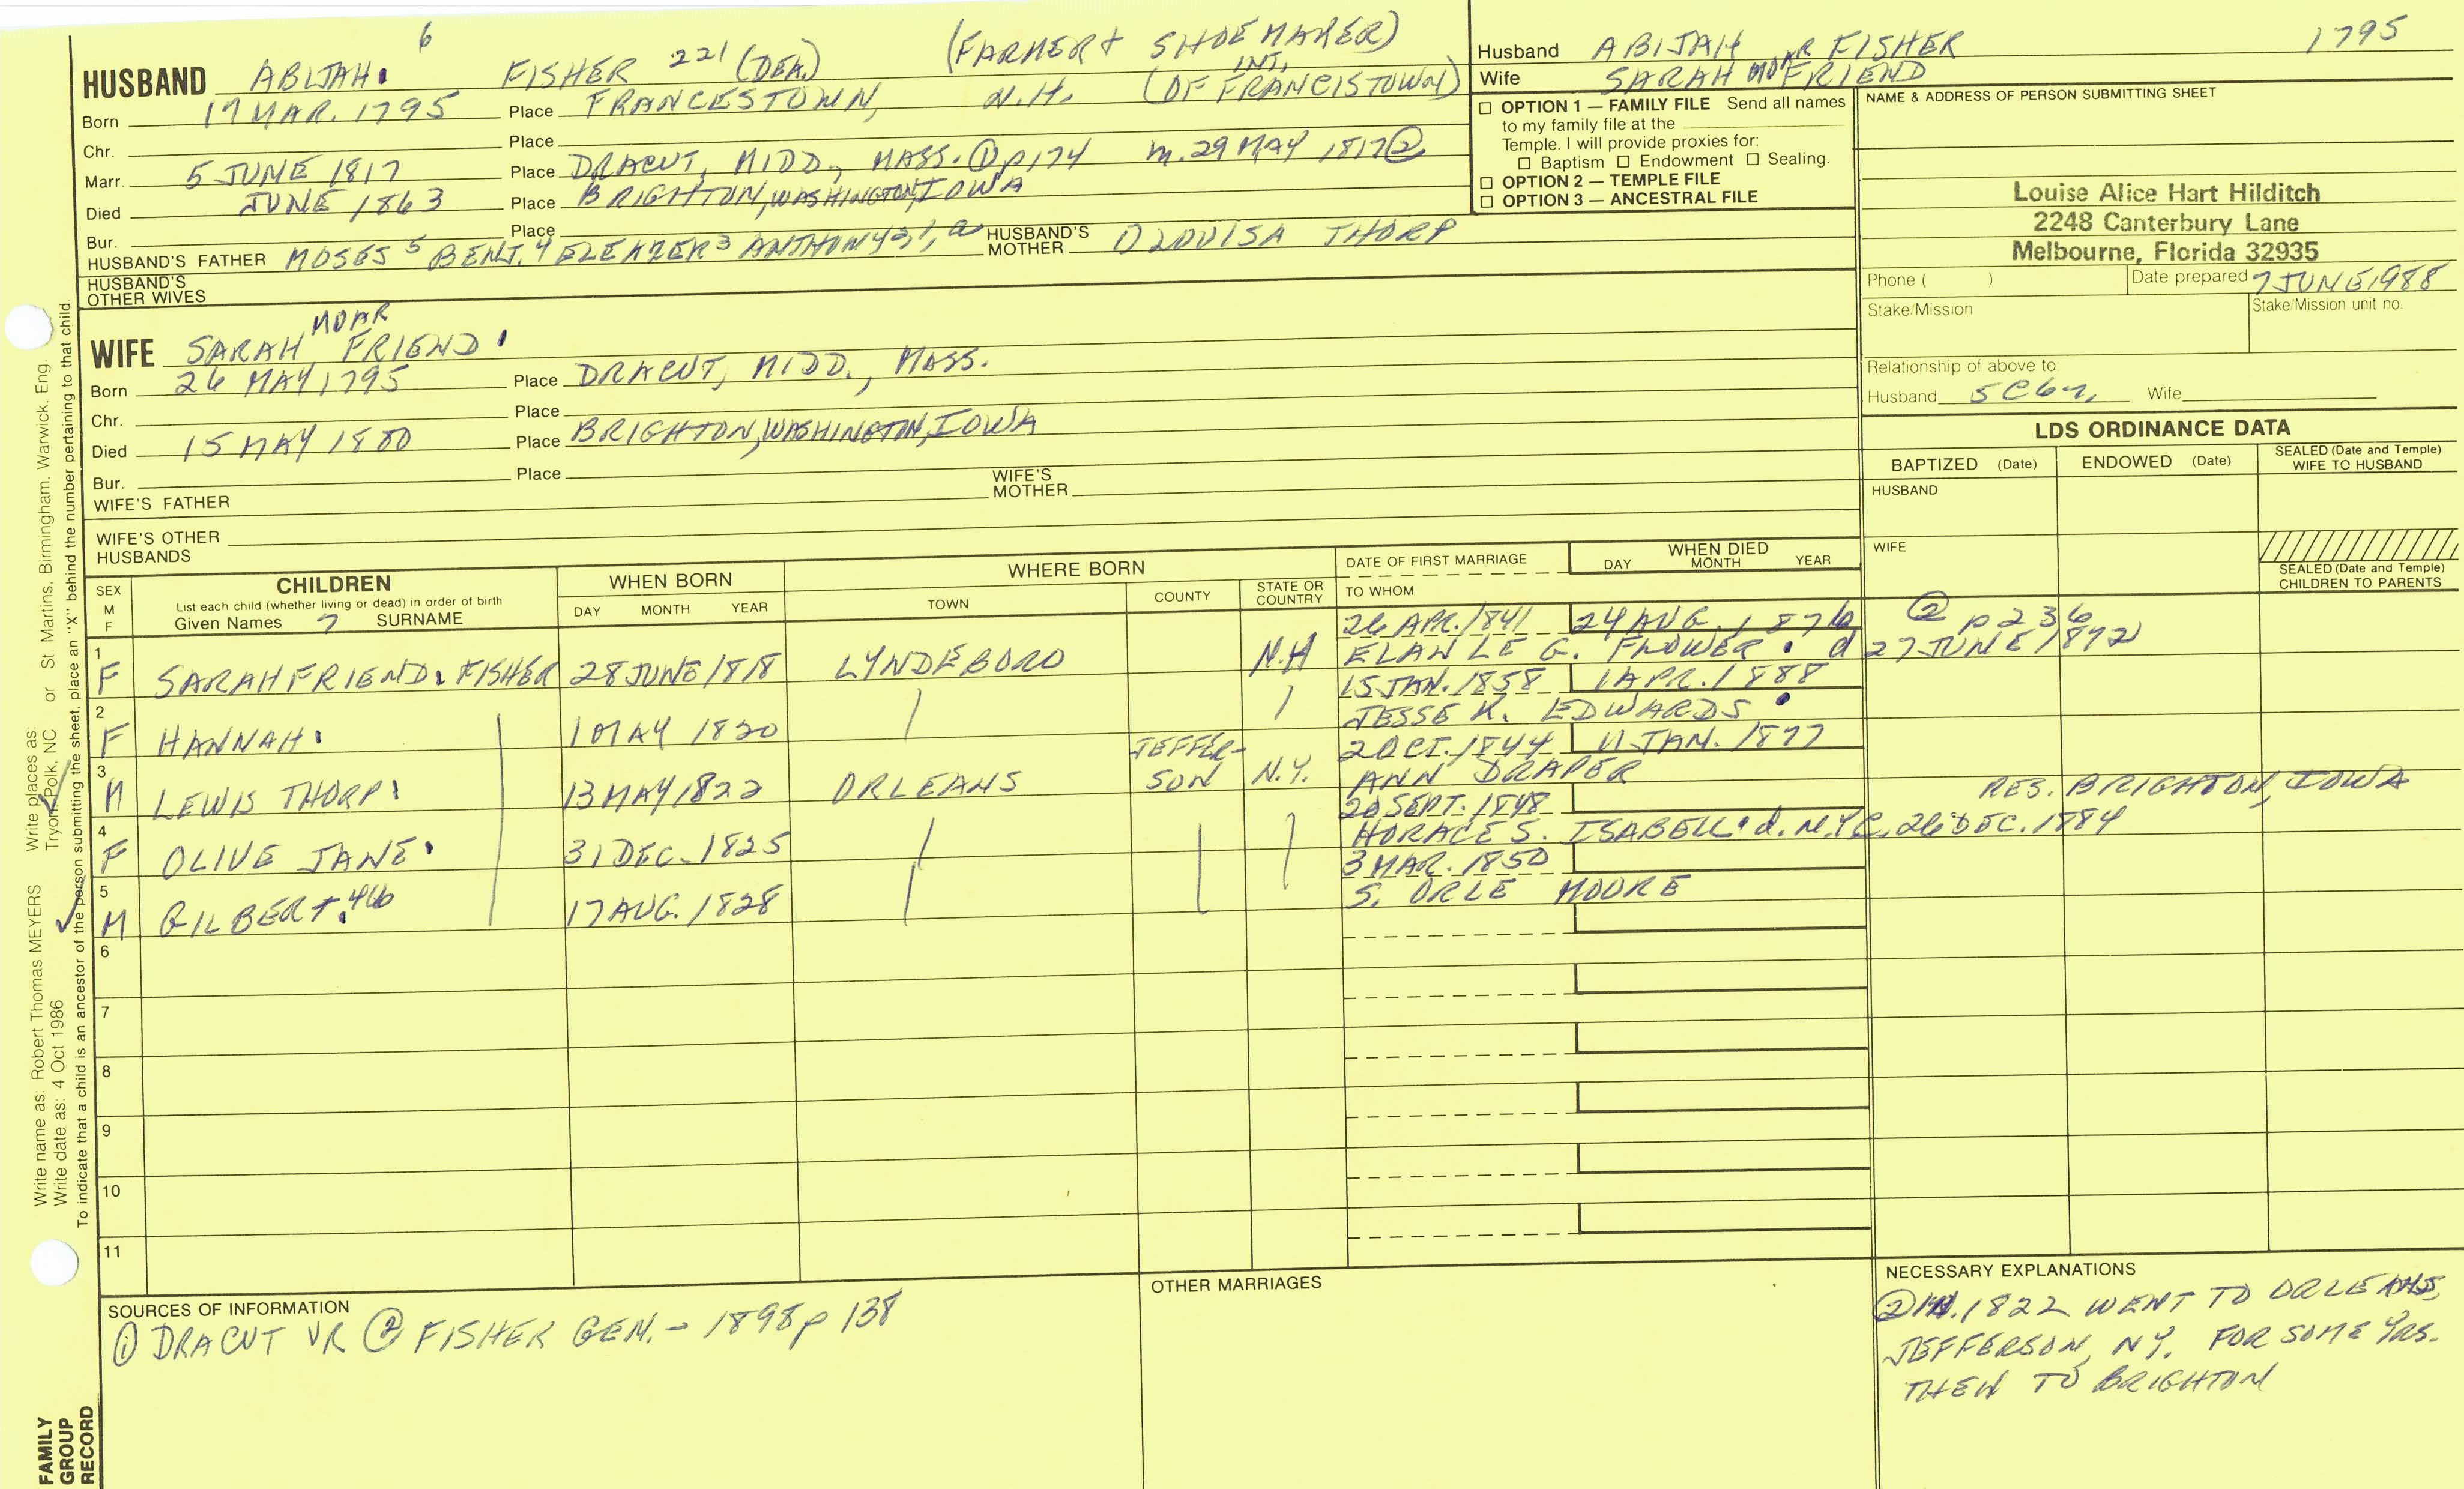 6
HUSBAND ABIJAH. FISHER 221 (DEA.) (FARMER & SHOEMAKER)
Born 17 MAR. 1795 Place FRANCESTOWN, N.H. INT. (OF FRANCISTOWN)
Chr. Place
Marr. 5 JUNE 1817 Place DRACUT, MIDD., MASS. ① p174 m. 29 MAY 1817 ②
Died JUNE 1863 Place BRIGHTON, WASHINGTON, IOWA
Bur. Place
HUSBAND'S FATHER MOSES 5 BENJ. 4 ELEAZER 3 ANTHONY 2, 1, HUSBAND'S MOTHER LOUISA THORP
HUSBAND'S OTHER WIVES
MOAR
WIFE SARAH FRIEND
Born 26 MAY 1795 Place DRACUT, MIDD., MASS.
Chr. Place
Died 15 MAY 1880 Place BRIGHTON, WASHINGTON, IOWA
Bur. Place
WIFE'S FATHER WIFE'S MOTHER
WIFE'S OTHER HUSBANDS
Husband ABIJAH FISHER 1795
Wife SARAH MOAR FRIEND
☐ OPTION 1 — FAMILY FILE Send all names
to my family file at the
Temple. I will provide proxies for:
☐ Baptism ☐ Endowment ☐ Sealing.
☐ OPTION 2 — TEMPLE FILE
☐ OPTION 3 — ANCESTRAL FILE
NAME & ADDRESS OF PERSON SUBMITTING SHEET
Louise Alice Hart Hilditch
2248 Canterbury Lane
Melbourne, Florida 32935
Phone ( ) Date prepared 7 JUNE 1988
Stake/Mission Stake/Mission unit no.
Relationship of above to:
Husband 5C6 Wife
LDS ORDINANCE DATA
BAPTIZED (Date) ENDOWED (Date) SEALED (Date and Temple) WIFE TO HUSBAND
HUSBAND
WIFE
SEALED (Date and Temple) CHILDREN TO PARENTS
SEX M F
CHILDREN
List each child (whether living or dead) in order of birth
Given Names 7 SURNAME
WHEN BORN
DAY MONTH YEAR
WHERE BORN
TOWN COUNTY STATE OR COUNTRY
DATE OF FIRST MARRIAGE
TO WHOM
WHEN DIED
DAY MONTH YEAR
26 APR. 1841 24 AUG. 1876 ② p236
1 F SARAH FRIEND. FISHER 28 JUNE 1818 LYNDEBORO N.H ELAN LE G. FLOWER. d 27 JUNE 1892
15 JAN. 1858 1 APR. 1888
2 F HANNAH. 1 MAY 1820 JESSE K. EDWARDS
2 OCT. 1844 11 JAN. 1877
3 M LEWIS THORP. 13 MAY 1822 ORLEANS JEFFERSON N.Y. ANN DRAPER
20 SEPT. 1848 RES. BRIGHTON, IOWA
4 F OLIVE JANE. 31 DEC. 1825 HORACE S. ISABELL. d. N.Y.C. 26 DEC. 1884
3 MAR. 1850
5 M GILBERT. 446 17 AUG. 1828 S. ORLE MOORE
6
7
8
9
10
11
SOURCES OF INFORMATION
① DRACUT VR ② FISHER GEN. - 1898 p 138
OTHER MARRIAGES
NECESSARY EXPLANATIONS
② 1822 WENT TO ORLEANS,
JEFFERSON, NY. FOR SOME YRS.
THEN TO BRIGHTON
Write name as: Robert Thomas MEYERS Write places as: Tryon, Polk, NC or St. Martins, Birmingham, Warwick, Eng.
Write date as: 4 Oct 1986
To indicate that a child is an ancestor of the person submitting the sheet, place an "X" behind the number pertaining to that child.
FAMILY
GROUP
RECORD